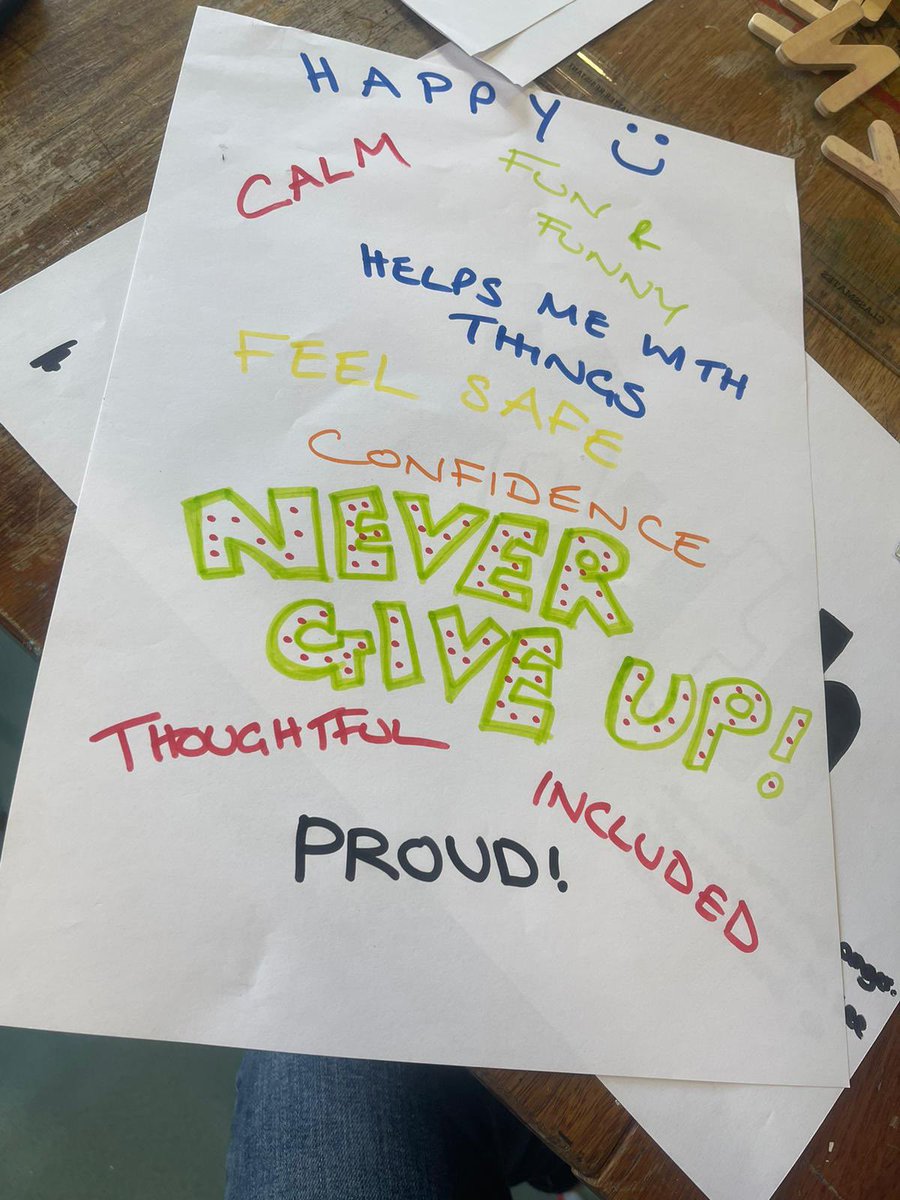 HAPPY
CALM
FUN &
FUNNY
HELPS ME WITH
THINGS
FEEL SAFE
CONFIDENCE
NEVER
GIVE UP!
THOUGHTFUL
INCLUDED
PROUD!